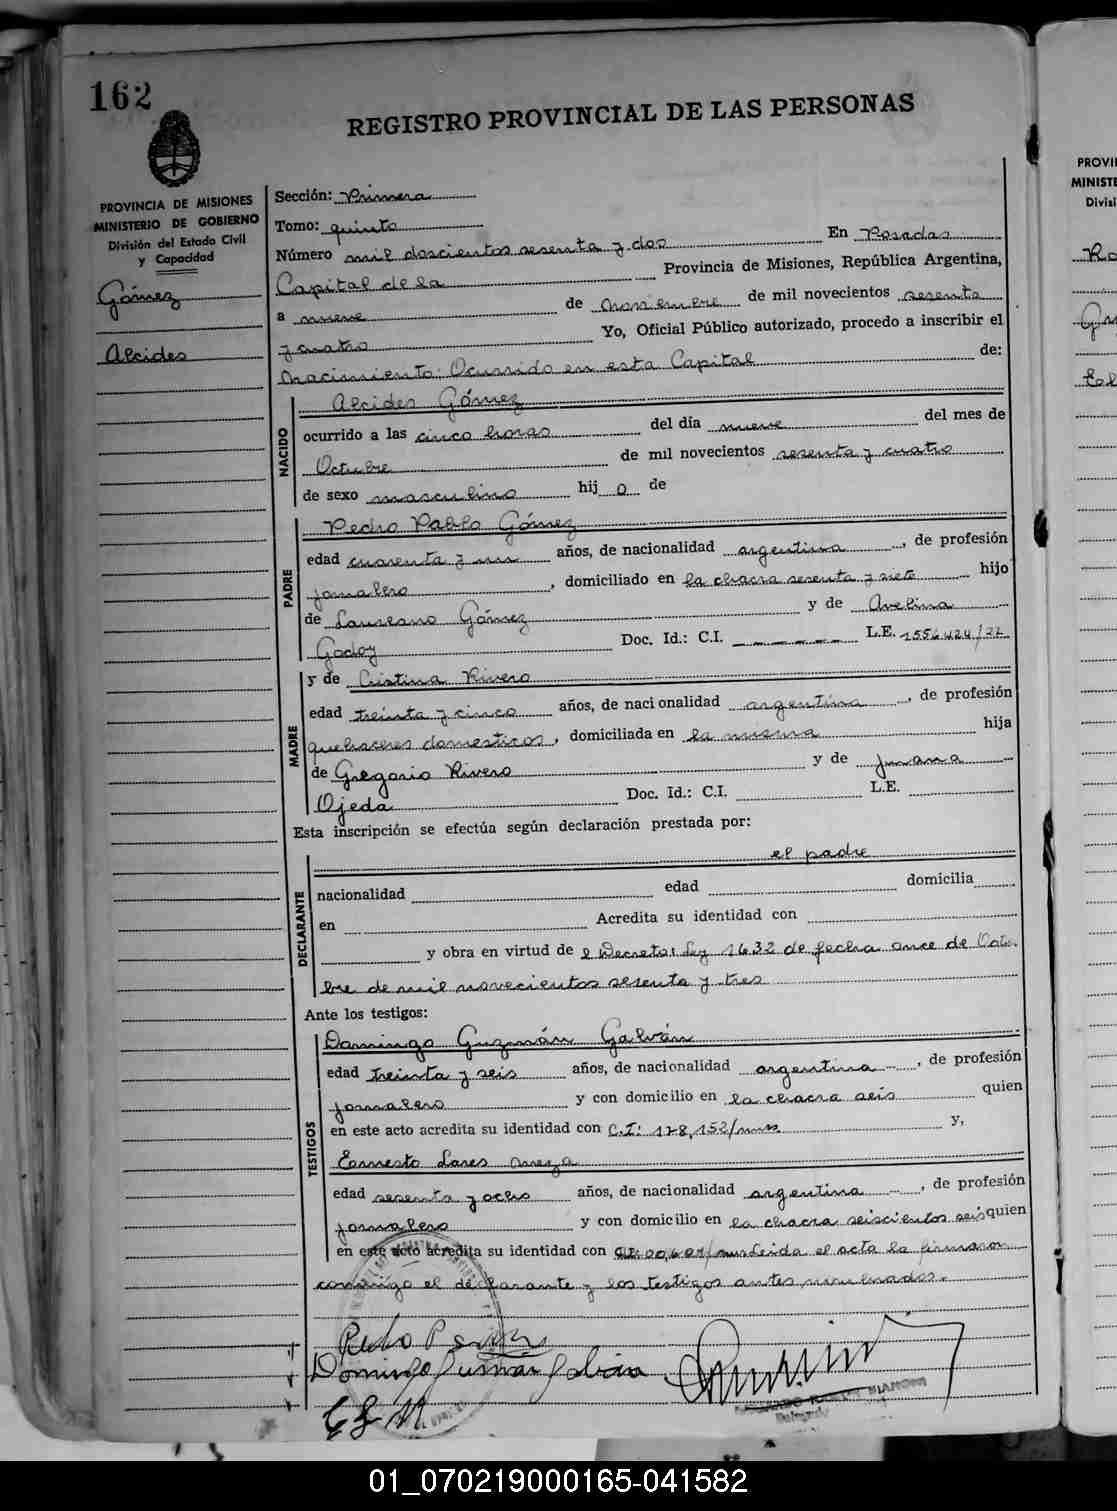 162
REGISTRO PROVINCIAL DE LAS PERSONAS
PROVINCIA DE MISIONES
MINISTERIO DE GOBIERNO
División del Estado Civil
y Capacidad
Gómez
Alcides
Sección: Primera
Tomo: quinto
Número mil doscientos sesenta y dos En Posadas
Capital de la Provincia de Misiones, República Argentina,
a nueve de noviembre de mil novecientos sesenta
y cuatro Yo, Oficial Público autorizado, procedo a inscribir el
nacimiento: Ocurrido en esta Capital de:
NACIDO
Alcides Gómez
ocurrido a las cinco horas del día nueve del mes de
Octubre de mil novecientos sesenta y cuatro
de sexo masculino hij o de
PADRE
Pedro Pablo Gómez
edad cuarenta y un años, de nacionalidad argentina, de profesión
jornalero, domiciliado en la chacra sesenta y siete hijo
de Laureano Gómez y de Avelina
Godoy Doc. Id.: C.I. L.E. 1556424/22
MADRE
y de Cristina Rivero
edad treinta y cinco años, de nacionalidad argentina, de profesión
quehaceres domesticos, domiciliada en la misma hija
de Gregorio Rivero y de Juana
Ojeda Doc. Id.: C.I. L.E.
Esta inscripción se efectúa según declaración prestada por:
DECLARANTE
el padre
nacionalidad edad domicilia
en Acredita su identidad con
y obra en virtud de l Decreto: Ley 1632 de fecha once de Octu.
bre de mil novecientos sesenta y tres
Ante los testigos:
TESTIGOS
Domingo Guzmán Galván
edad treinta y seis años, de nacionalidad argentina, de profesión
jornalero y con domicilio en la chacra seis quien
en este acto acredita su identidad con C.I: 128,152/mns y,
Ernesto Lares Meza
edad sesenta y ocho años, de nacionalidad argentina, de profesión
jornalero y con domicilio en la chacra seiscientos seis quien
en este acto acredita su identidad con Leida el acta la firmaron
conmigo el declarante y los testigos antes nombrados.
Domingo Guzman Galván
PROVI
MINISTE
Divisi
01_070219000165-041582